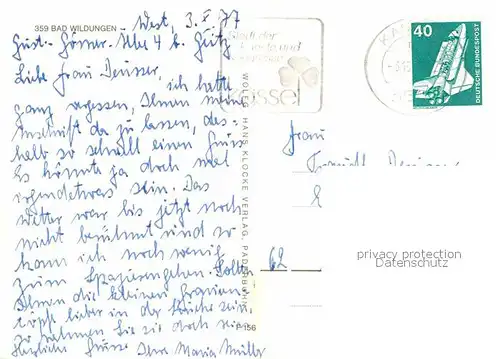 359 BAD WILDUNGEN
West, 3. X. 77
Gust.-Gösser-Allee 4 b. Götz
Liebe Frau Deusser, ich hatte
ganz vergessen, Ihnen meine
Anschrift da zu lassen, des-
halb so schnell einen Gruss.
Es könnte ja doch mal
irgendetwas sein. Das
Wetter war bis jetzt noch
nicht berühmt und so
kann ich noch wenig
zum Spazierengehen. Sollten
Ihnen die kleinen
lieber in der Küche sein,
so nehmen Sie sie doch
Herzliche Grüsse Ihre Maria Müller
WOLFG. HANS KLOCKE VERLAG, PADERBORN
P 156
Stadt der
und
40
DEUTSCHE BUNDESPOST
Frau
62
privacy protection
Datenschutz